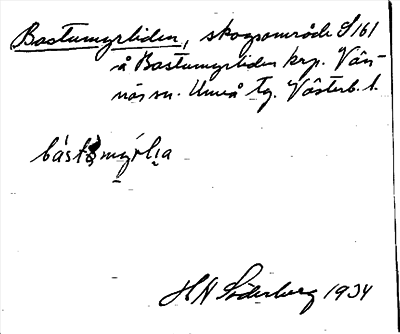 Bastumyrliden, skogsområde S 161
å Bastumyrliden krp. Vän-
näs sn. Umeå tg. Västerb. l.
HN Söderberg 1934